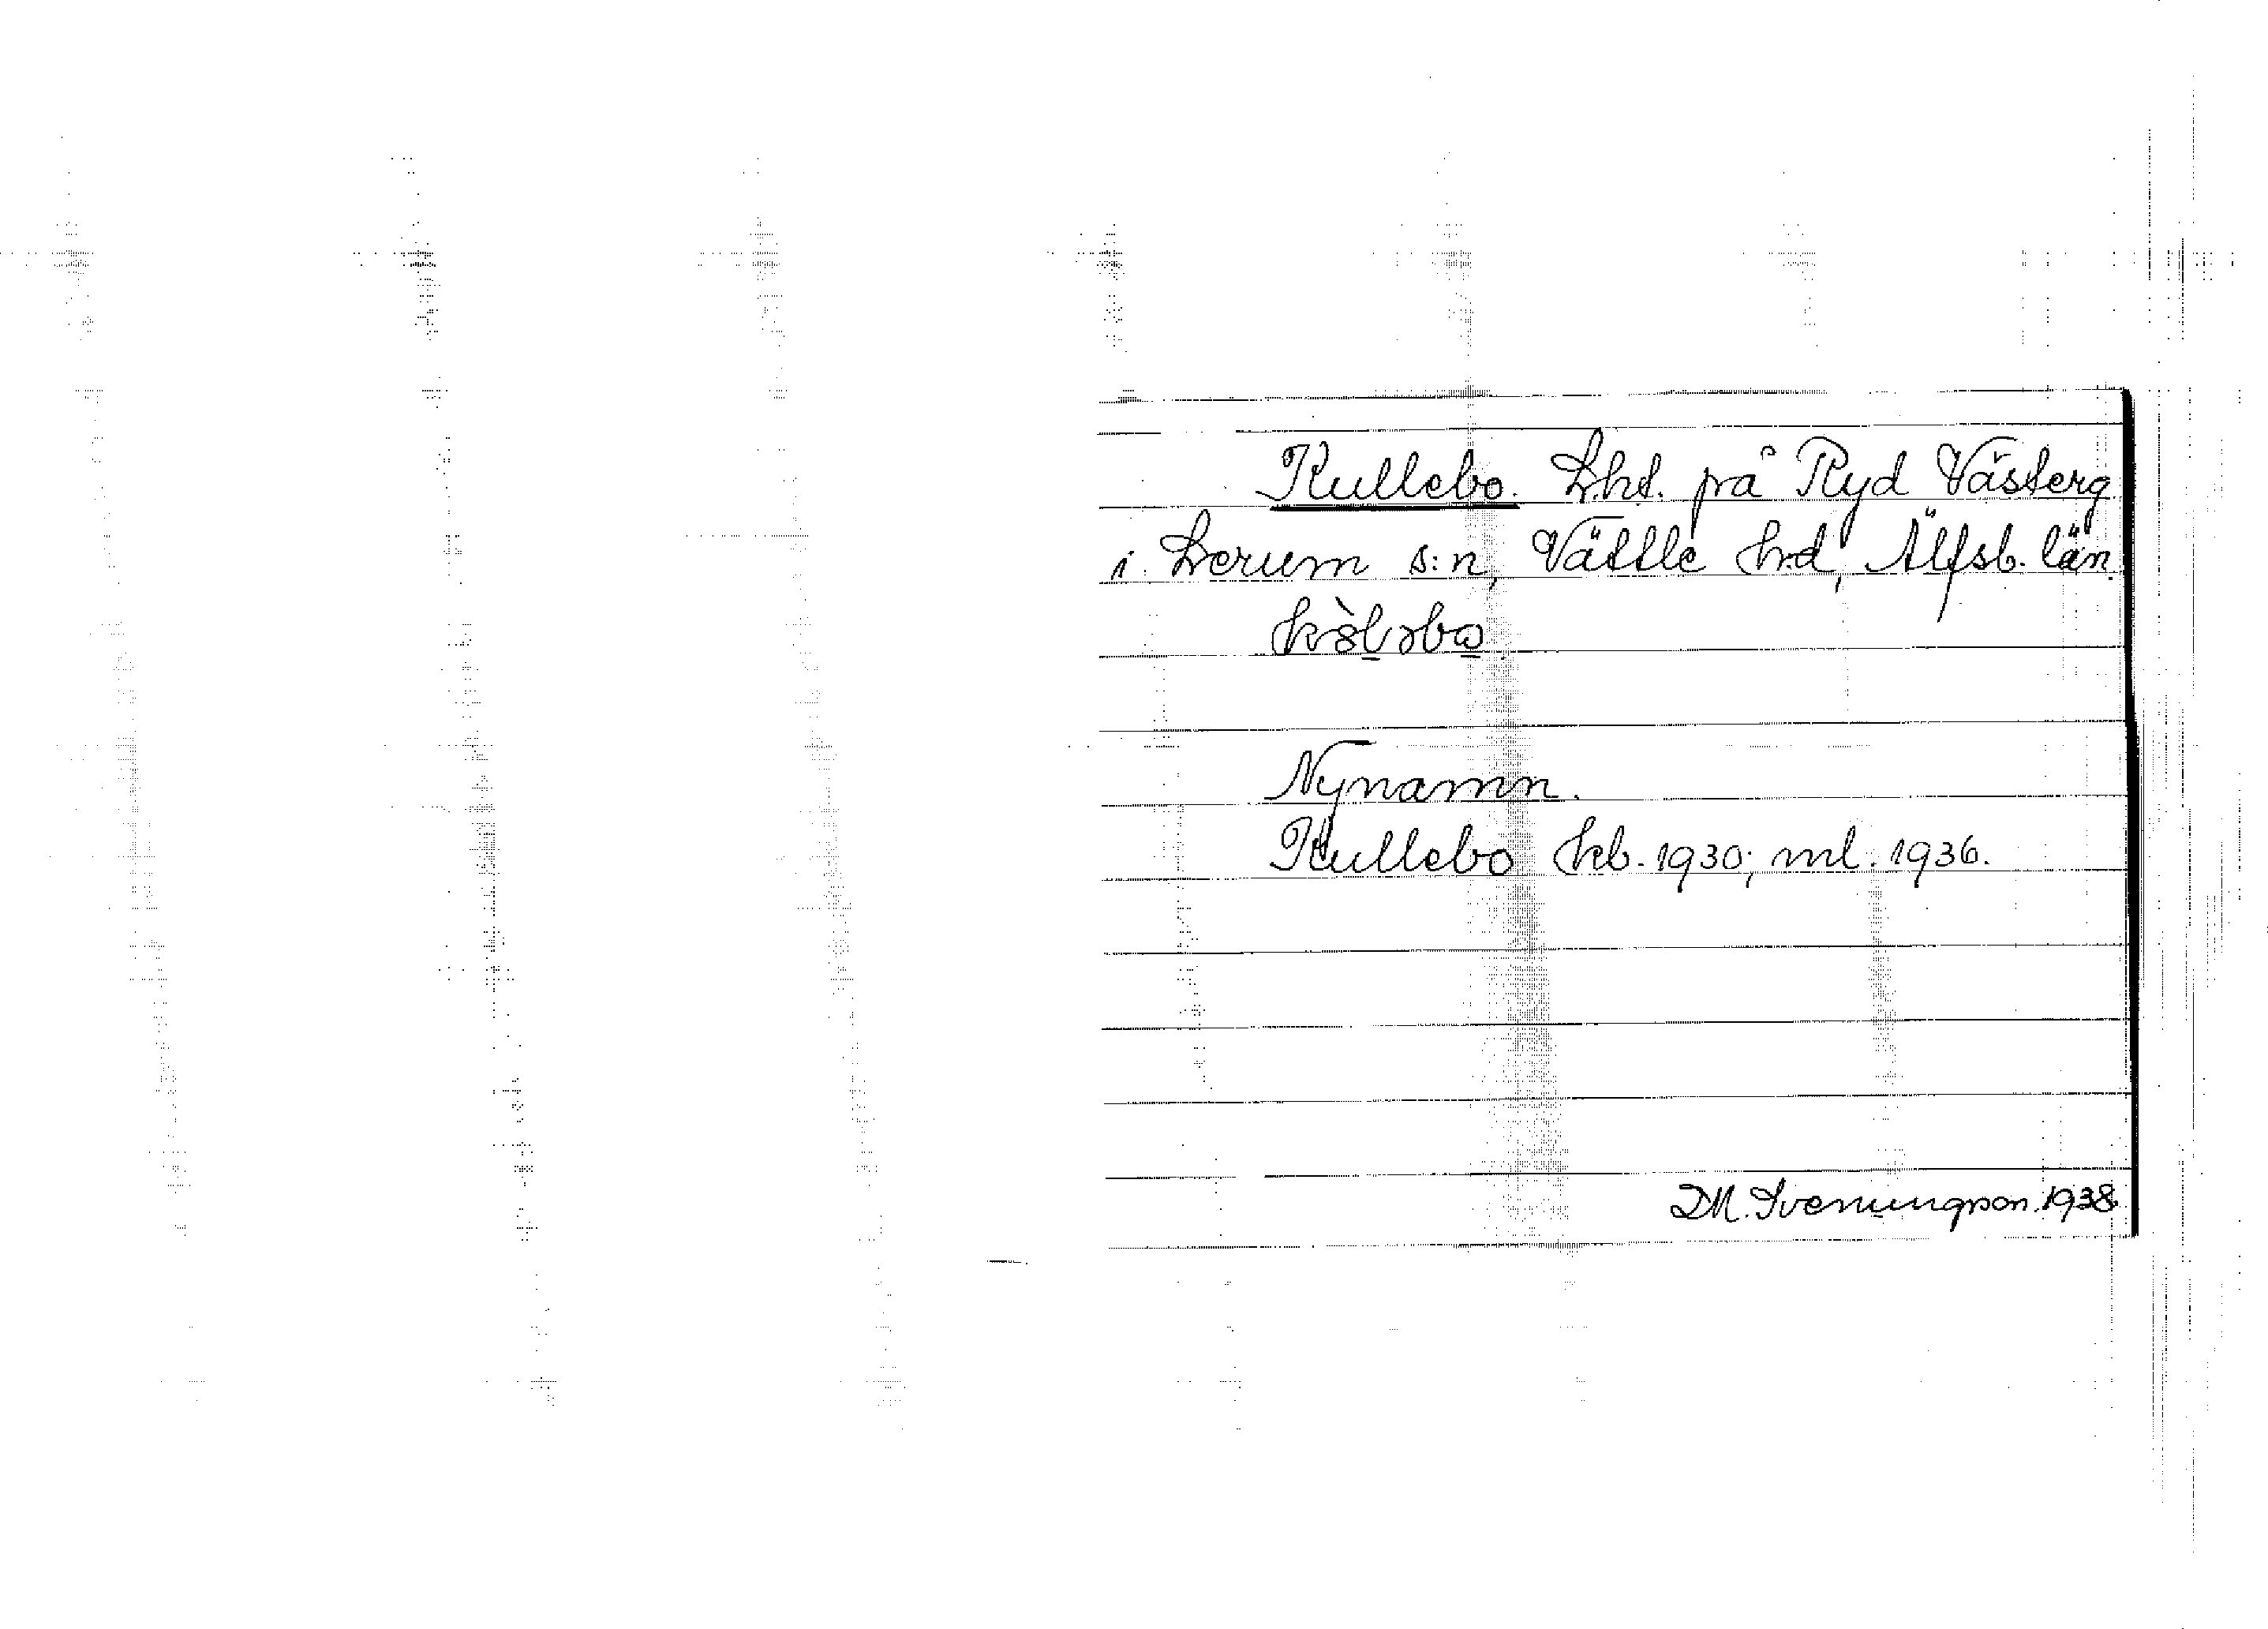 Kullebo. Lht. på Ryd Västerg.
i Lerum s:n, Vättle hd, Älfsb. län.
Nynamn.
Kullebo kb. 1930; ml. 1936.
DM. Svenungson. 1938